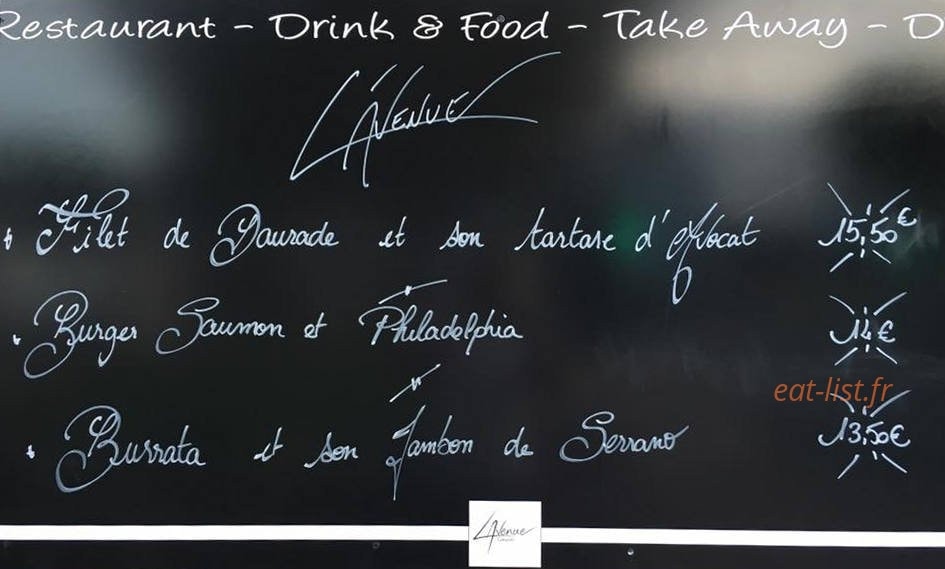 Restaurant - Drink & Food - Take Away - D
L'Avenue
Filet de Daurade et son tartare d'Avocat 15,50€
Burger Saumon et Philadelphia 14€
eat-list.fr
Burrata et son Jambon de Serrano 13,50€
L'Avenue